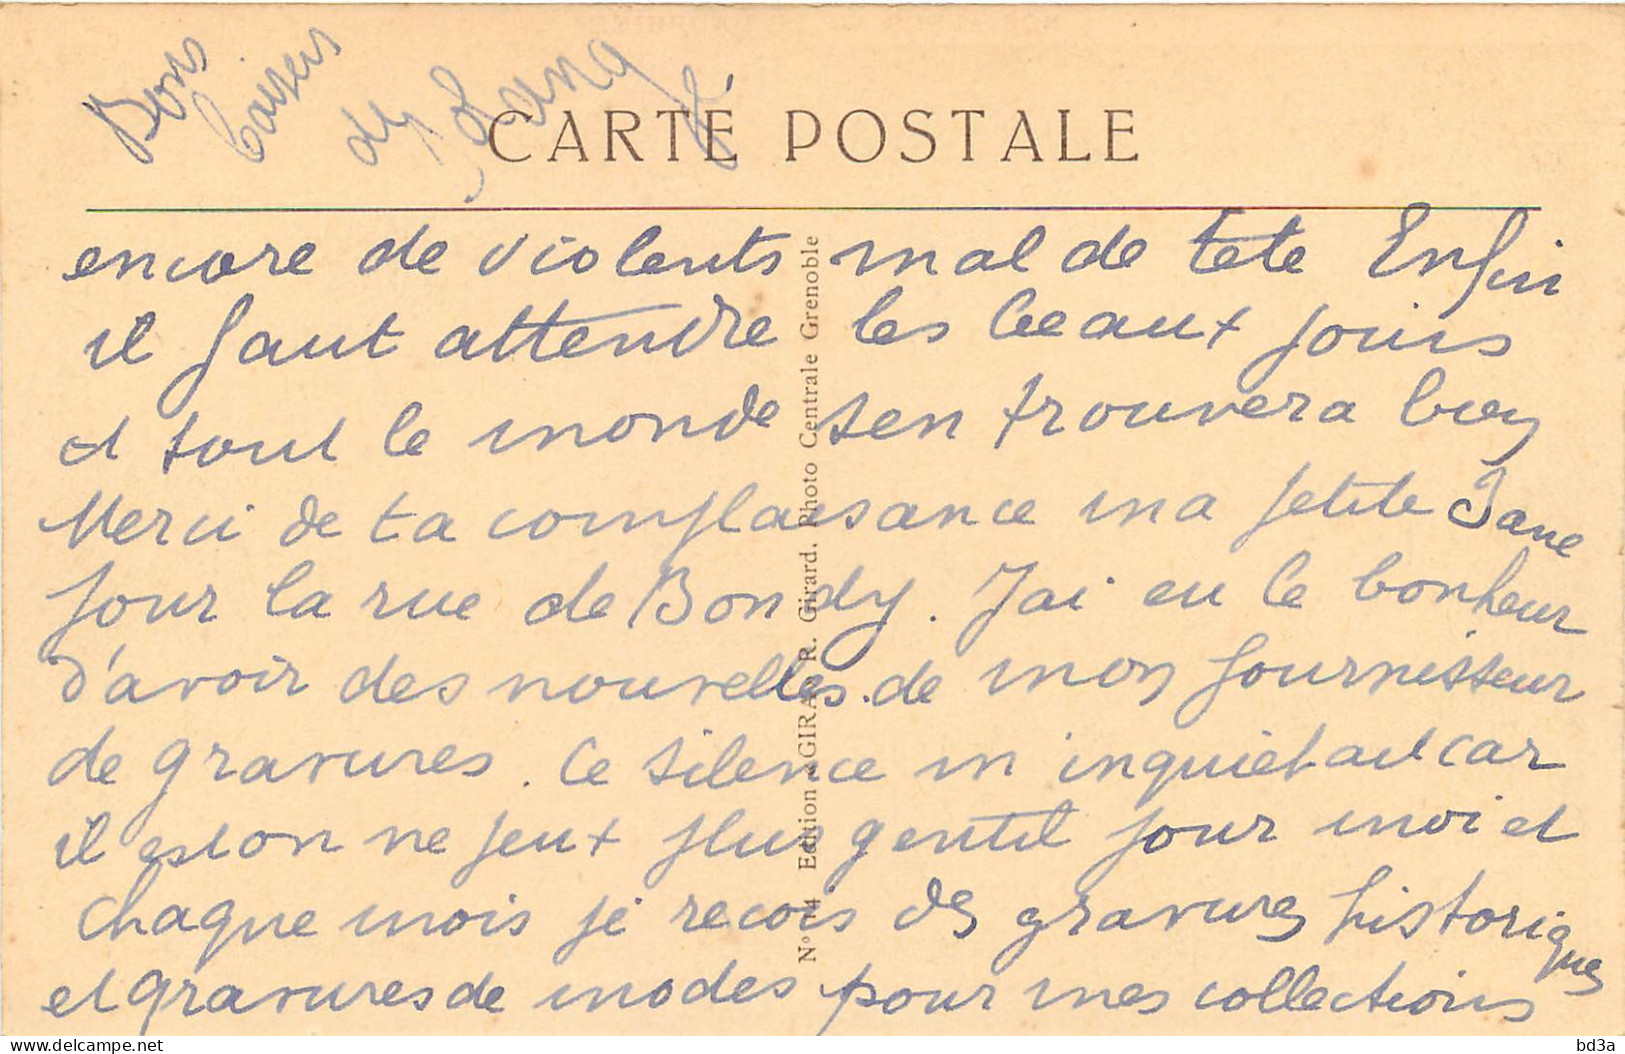 Bons baisers de
CARTE POSTALE
encore de violents mal de tete Enfin
il faut attendre les beaux jours
et tout le monde sen trouvera bien
Merci de ta complaisance ma petite Jane
pour la rue de Bondy. J'ai eu le bonheur
d'avoir des nouvelles de mon fournisseur
de gravures. Ce silence m inquietait car
il est on ne peux plus gentil pour moi et
chaque mois je recois des gravures historiques
et gravures de modes pour mes collections
N° 14 Edition GIRA R. Girard. Photo Centrale Grenoble
bd3a